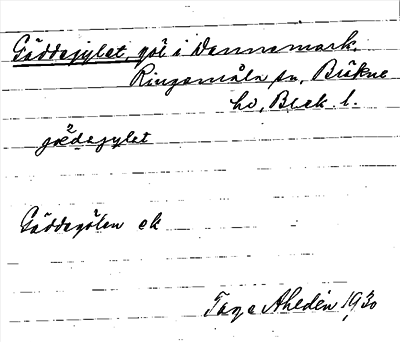 Gäddegylet, göl i Dannemark.
Ringamåla sn, Bräkne
hd, Blek. l.
jæ²degylet
Gäddegölen ek
Tage Ahldén 1930